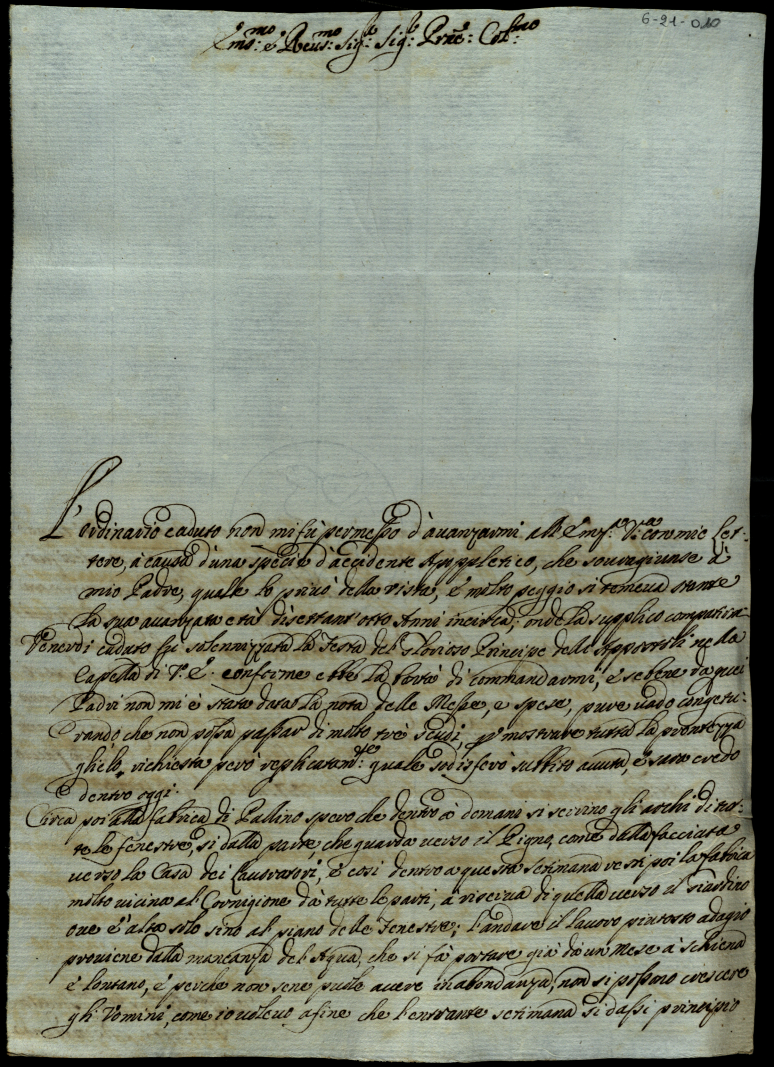 6-21-010
Em̃o: e Reumo: Sigr: Sigr: Prñe: Colmo
L'ordinario caduto non mi fù permesso d'auanzarmi all'Emza Va con mie Let-
tere, à causa d'una specie d'accidente Appopletico, che souragiunse à
mio Padre, quale lo priuò della vista, e molto peggio si temeua stante
la sua auanzata età di settant'otto Anni incirca; onde la supplico compatirmi
Venerdi caduto fù solennizzata la Festa del Glorioso Principe delli Appostoli nella
Capella di V.E. conforme ebbe la bontà di commandarmi, e sebene da quei
Padri non mi è stata data la nota delle Messe, e spese, pure uado congetu-
rando che non possa passar di molto trè Scudi, p mostrare tutta la prontezza
gliela richiesta però replicatamte quale sodisferò subbito auuta, e sarà credo
dentro oggi.
Circa poi alla fabrica di Pallino spero che dentro à domani si serrino gli archi di tut-
te le fenestre, si dalla parte che guarda uerso il Pigno, come dalla facciata
uerso la Casa dei Lauoratori, e così dentro a questa settimana resti poi la fabrica
molto uicina al Cornigione dà tutte le parti, à riserua di quella uerso il Giardino
oue è alta solo sino al piano delle Fenestre; l'andare il lauoro piutosto adagio
prouiene dalla mancanza del Aqua, che si fà portare già dà un Mese à schiena
e lontano, e perche non sene puole auere in abondanza, non si possono crescere
gli Vomini, come io uoleuo afine che l'entrante settimana si dassi principio